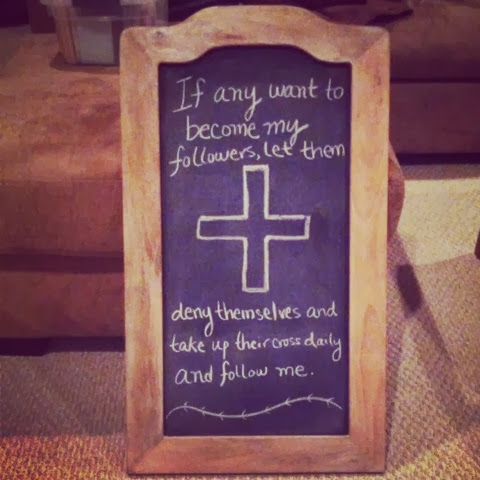 If any want to
become my
followers, let them
deny themselves and
take up their cross daily
and follow me.